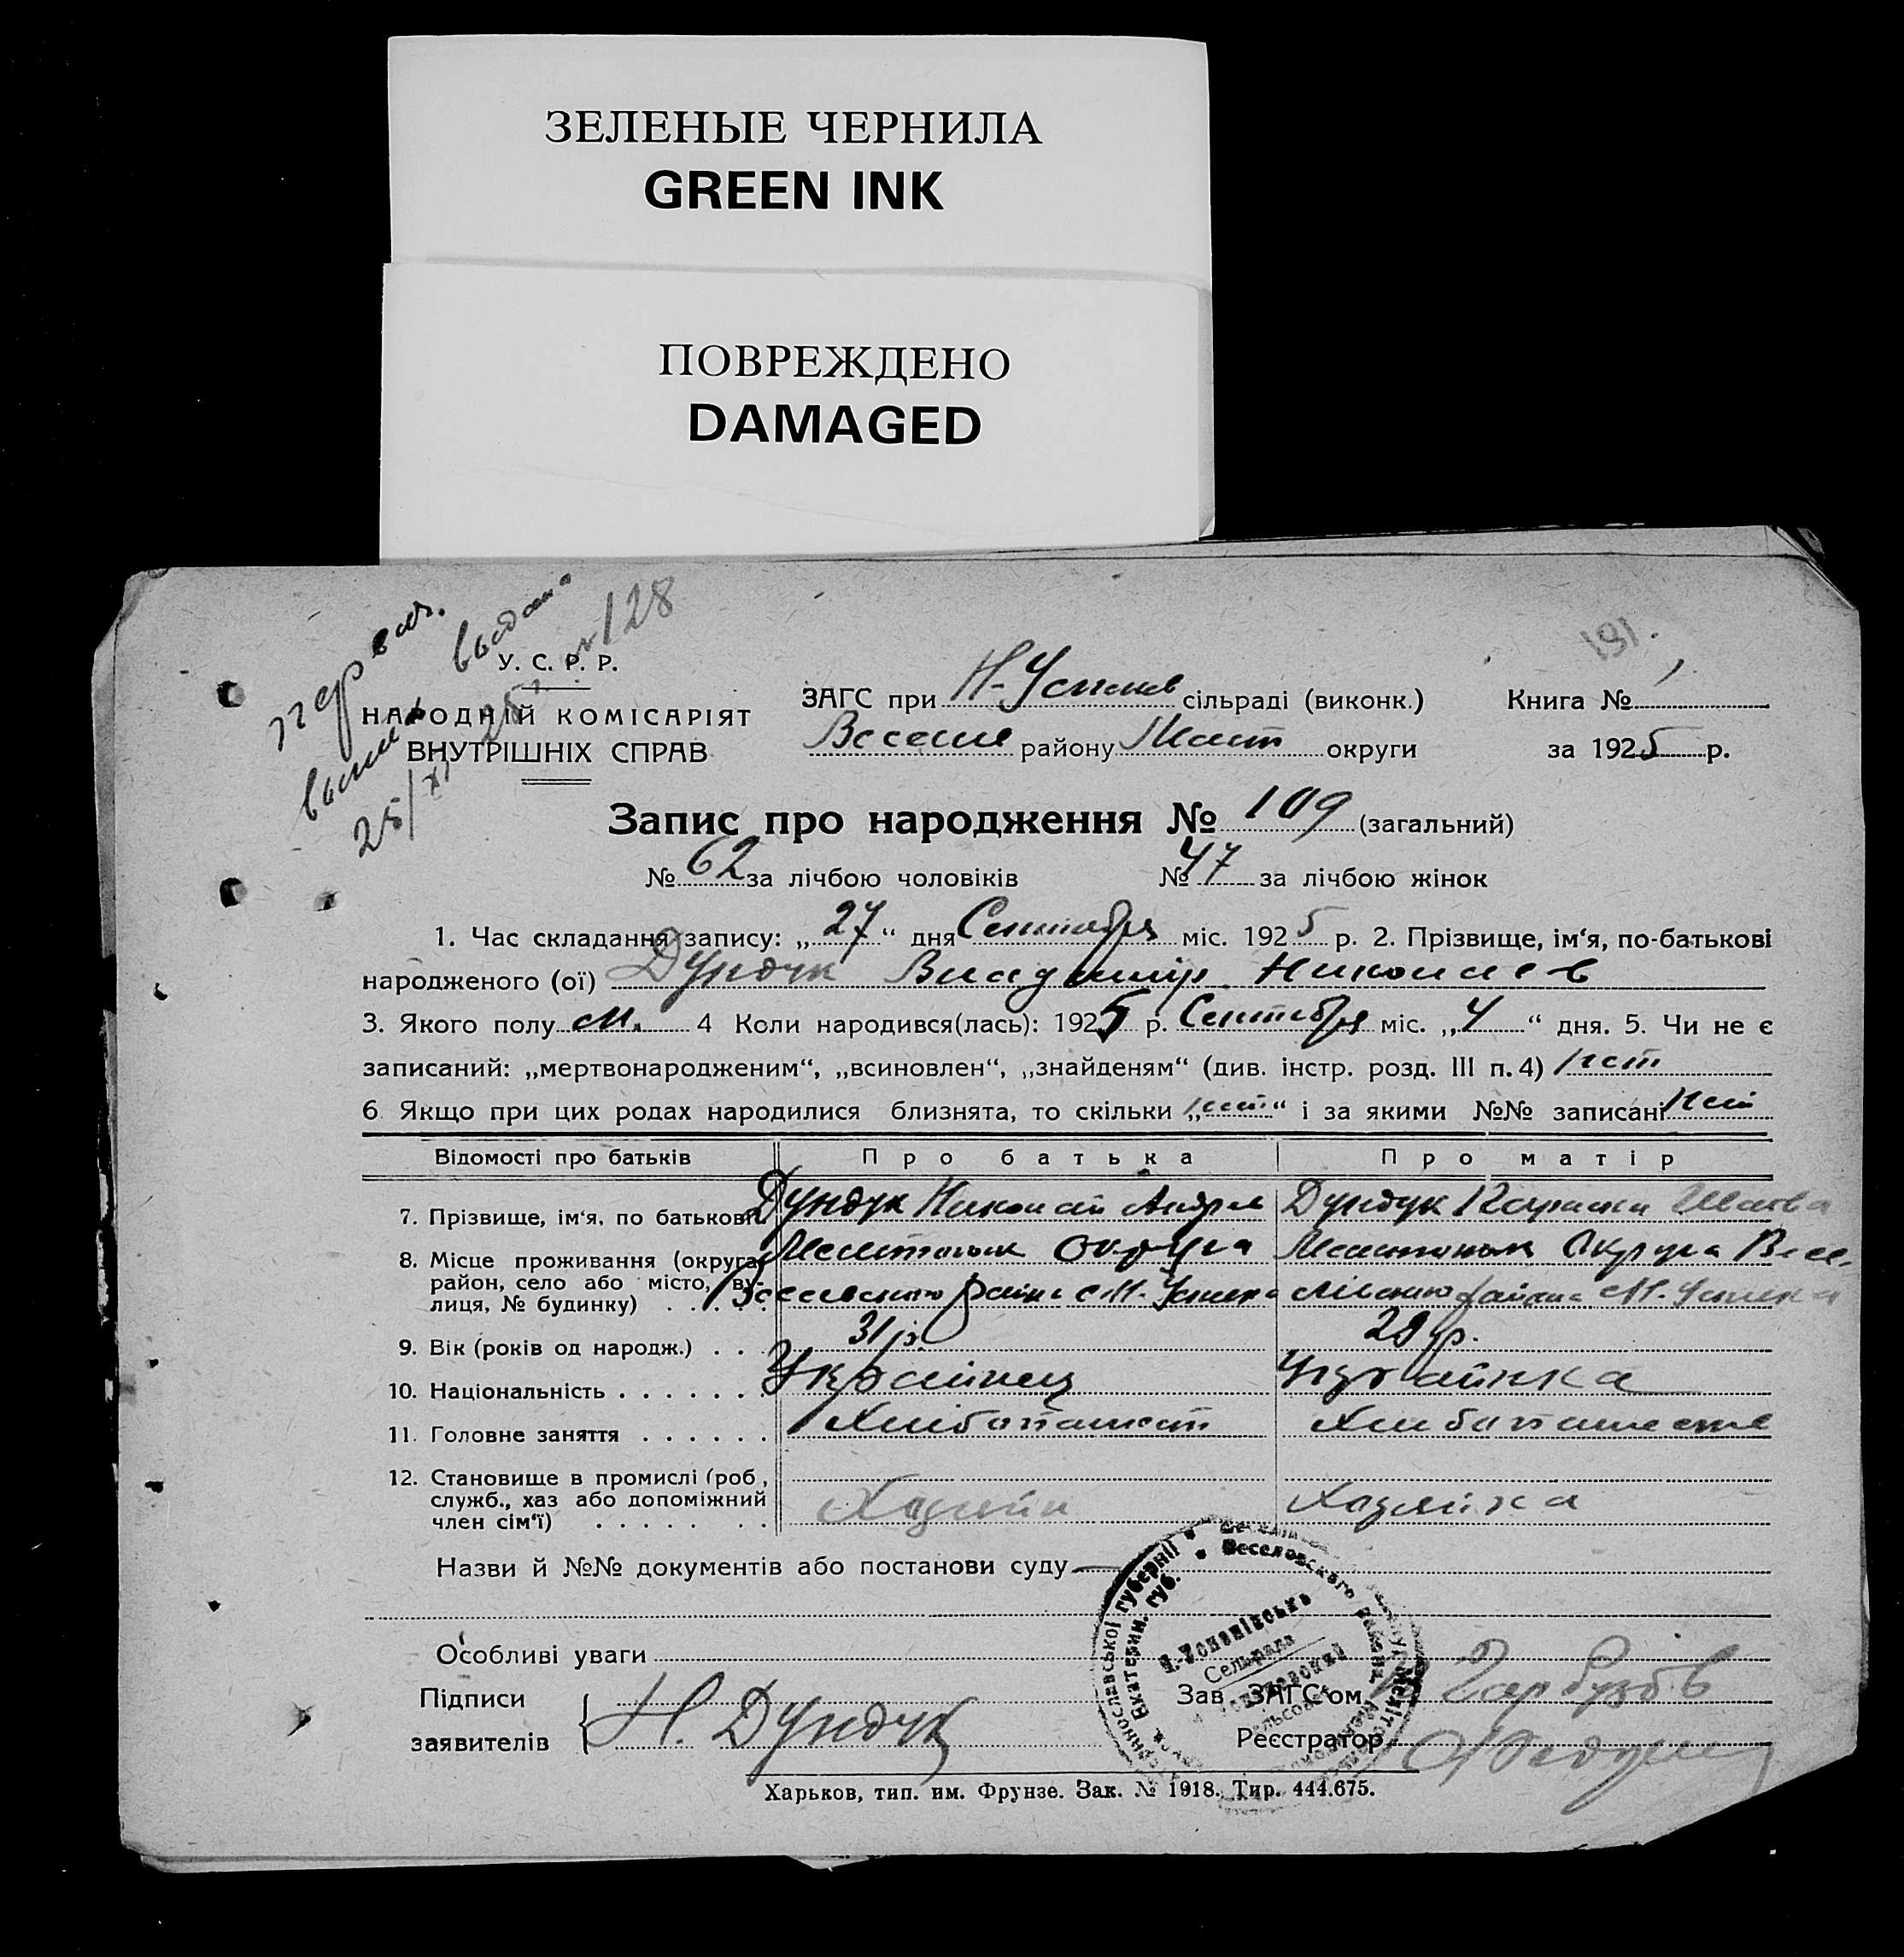 ЗЕЛЕНЫЕ ЧЕРНИЛА
GREEN INK
ПОВРЕЖДЕНО
DAMAGED
128
191.
У. С. Р. Р.
НАРОДНІЙ КОМІСАРІЯТ
ВНУТРІШНІХ СПРАВ
25/XI 25
ЗАГС при Н-Успенів сільраді (виконк.) Книга № 1
Веселів району Меліт округи за 1925 р.
Запис про народження № 109 (загальний)
№ 62 за лічбою чоловіків № 47 за лічбою жінок
1. Час складання запису: „27“ дня Сентября міс. 1925 р. 2. Прізвище, ім‘я, по-батькові
народженого (ої) Дундук Владимір Николаев
3. Якого полу м. 4 Коли народився(лась): 1925 р. Сентября міс. „4“ дня. 5. Чи не є
записаний: „мертвонародженим“, „всиновлен“, „знайденям“ (див. інстр. розд. III п. 4) нет
6 Якщо при цих родах народилися близнята, то скільки „нет“ і за якими №№ записані нет
Відомості про батьків Про батька Про матір
7. Прізвище, ім‘я, по батькові. Дундук Николай Андрев Дундук
8. Місце проживання (округа, район, село або місто, вулиця, № будинку) . . . . Округа Округа Весе-
9. Вік (років од народж.) . . . 31 р. 29 р.
10. Національність . . . . . . . Українец Українка
11. Головне заняття . . . . . . Хлібопашест Хлибопашество
12. Становище в промислі (роб., служб., хаз або допоміжний член сім‘ї) . . . . . . . Хазяйн Хазяйка
Назви й №№ документів або постанови суду
Особливі уваги
Підписи
заявителів
Н. Дундук
Зав. ЗАГС‘ом Гарбузов
Реєстратор
Веселовского района
Екатерин. губ.
Н.-Успенівська
Сельрада
Харьков, тип. им. Фрунзе. Зак. № 1918. Тир. 444.675.